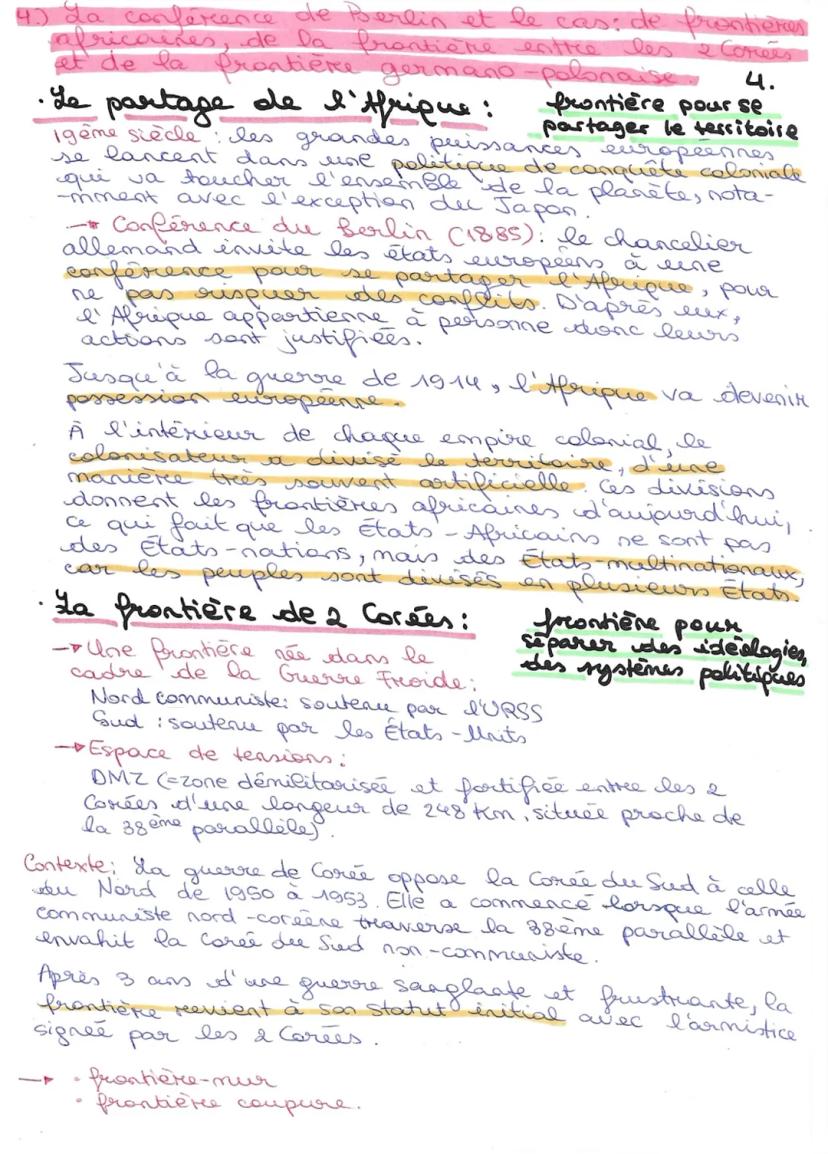 4.) La conférence de Berlin et le cas : de frontières
africaines, de la frontière entre les 2 Corées
et de la frontière germano-polonaise.
4.
· Le partage de l'Afrique :
frontière pour se
partager le territoire
19ème siècle : les grandes puissances européennes
se lancent dans une politique de conquête coloniale
qui va toucher l'ensemble de la planète, nota-
-mment avec l'exception du Japon.
→ Conférence du Berlin (1885) : le chancelier
allemand invite les états européens à une
conférence pour se partager l'Afrique, pour
ne pas risquer des conflits. D'après eux,
l'Afrique appartienne à personne donc leurs
actions sont justifiées.
Jusqu'à la guerre de 1914, l'Afrique va devenir
possession européenne.
À l'intérieur de chaque empire colonial, le
colonisateur a divisé le territoire, d'une
manière très souvent artificielle. Ces divisions
donnent les frontières africaines d'aujourd'hui,
ce qui fait que les États-Africains ne sont pas
des États-nations, mais des États-multinationaux,
car les peuples sont divisés en plusieurs États.
· La frontière de 2 Corées :
frontière pour
séparer des idéologies,
des systèmes politiques
→ Une frontière née dans le
cadre de la Guerre Froide :
Nord communiste : soutenu par l'URSS
Sud : soutenu par les États-Units
→ Espace de tensions :
DMZ (= zone démilitarisée et fortifiée entre les 2
Corées d'une longeur de 248 km, située proche de
la 38ème parallèle)
Contexte : La guerre de Corée oppose la Corée du Sud à celle
du Nord de 1950 à 1953. Elle a commencé lorsque l'armée
communiste nord-coréène traverse la 38ème parallèle et
envahit la Coreé du Sud non-communiste.
Après 3 ans d'une guerre sanglante et frustrante, la
frontière revient à son statut initial avec l'armistice
signée par les 2 Corées.
→ · frontière-mur
· frontière coupure.